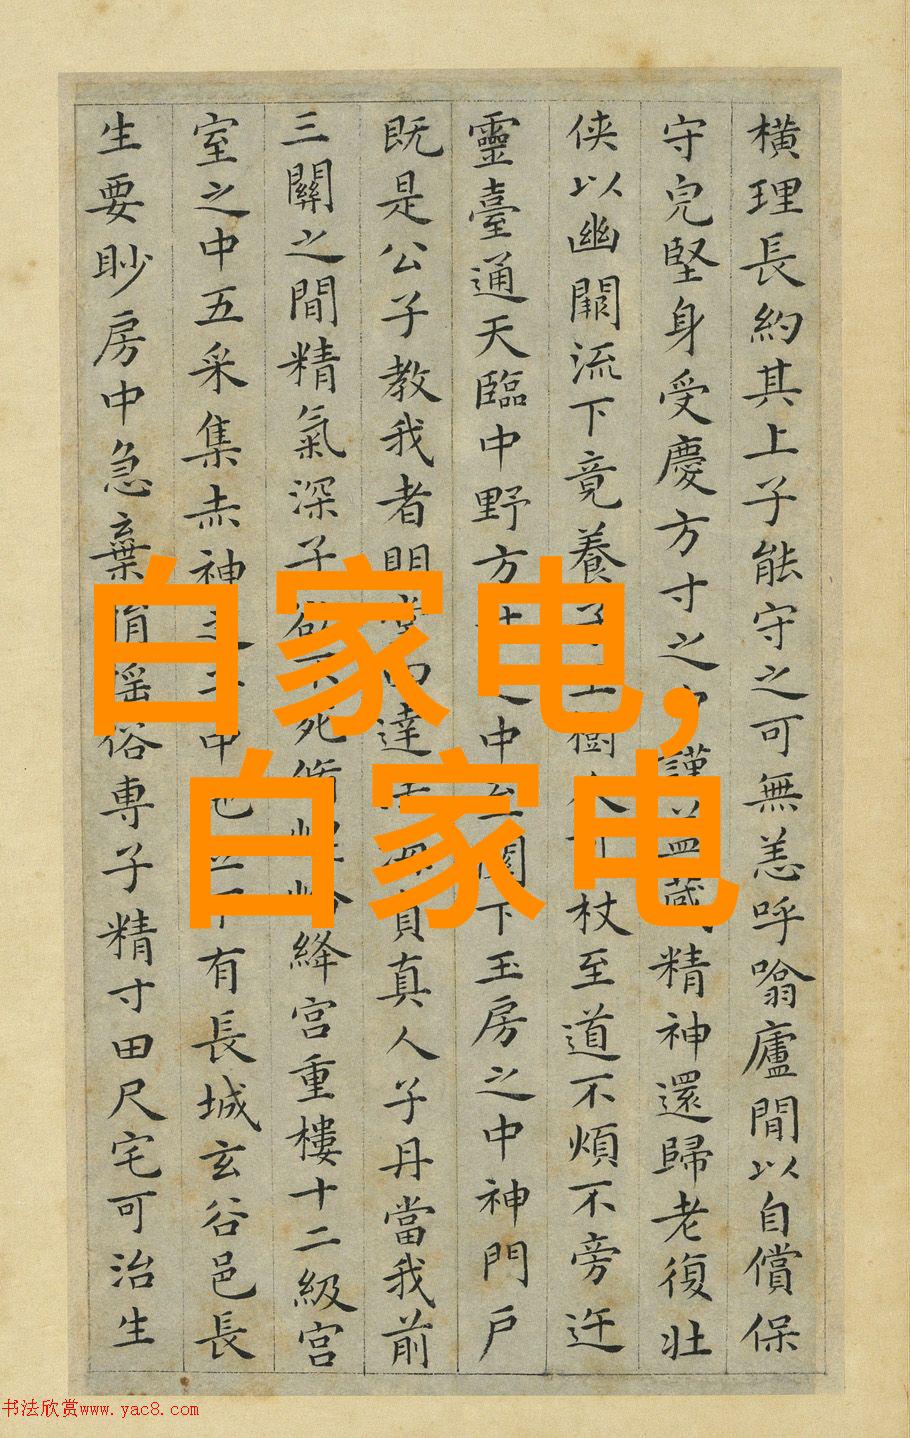 橫理長約其上子能守之可無恙呼噏廬間以自償保
守皃堅身受慶方寸之中謹蓋藏精神還歸老復壯
俠以幽闕流下竟養子玉樹人可杖至道不煩不旁迕
靈臺通天臨中野方寸之中至闕下玉房之中神門戶
既是公子教我者明堂四達法海員真人子丹當我前
三關之間精氣深子欲不死脩崐崘絳宮重樓十二級宮
室之中五采集赤神之子中池立下有長城玄谷邑長
生要眇房中急棄捐搖俗專子精寸田尺宅可治生
白家电,
白家电
书法欣赏www.yac8.com